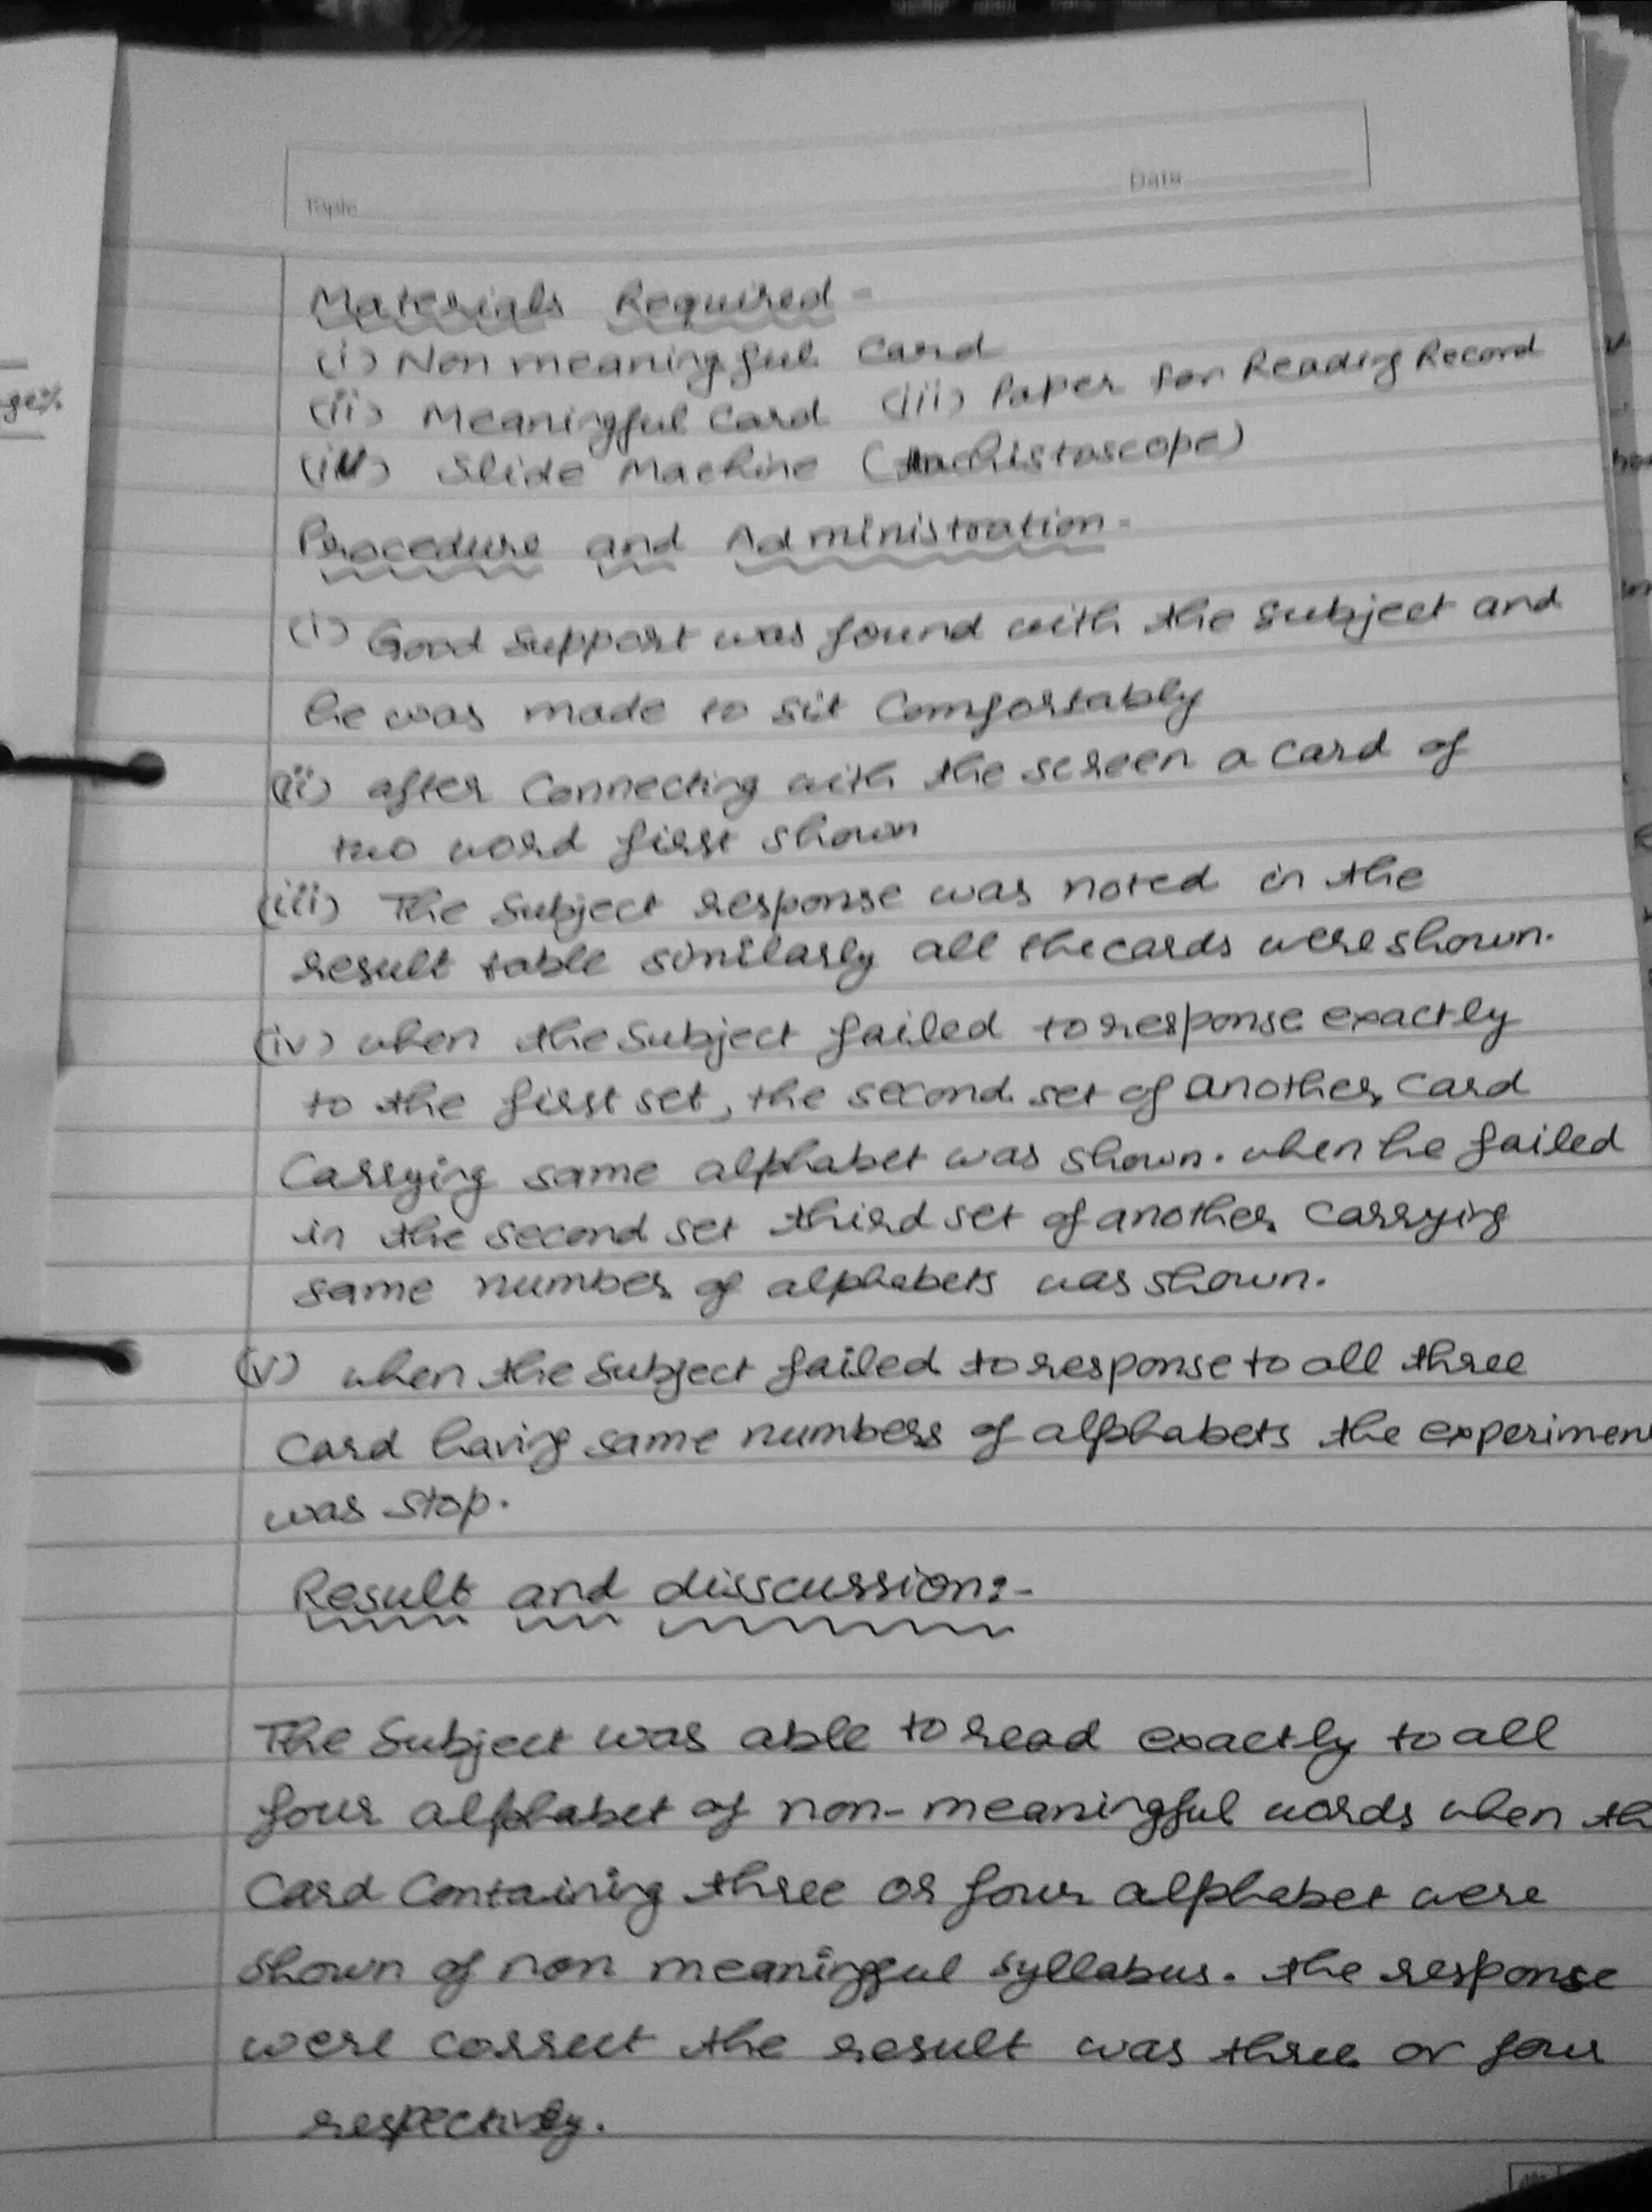 Topic
Date
Materials Required -
(i) Non meaningful Card
(ii) Meaningful Card (iii) Paper for Reading Record
(iv) Slide Machine (Tachistoscope)
Procedure and Administration -
(i) Good support was found with the subject and
he was made to sit Comfortably
(ii) after Connecting with the screen a card of
two word first shown
(iii) The subject response was noted in the
result table similarly all the cards were shown.
(iv) when the subject failed to response exactly
to the first set, the second set of another card
Carrying same alphabet was shown. when he failed
in the second set third set of another carrying
same number of alphabets was shown.
(v) when the subject failed to response to all three
Card having same numbers of alphabets the experimen
was stop.
Result and disscussion:-
The Subject was able to read exactly to all
four alphabet of non-meaningful words when th
Card Containing three or four alphabet were
shown of non meaningful syllabus. the response
were correct the result was three or four
respectively.
ge%